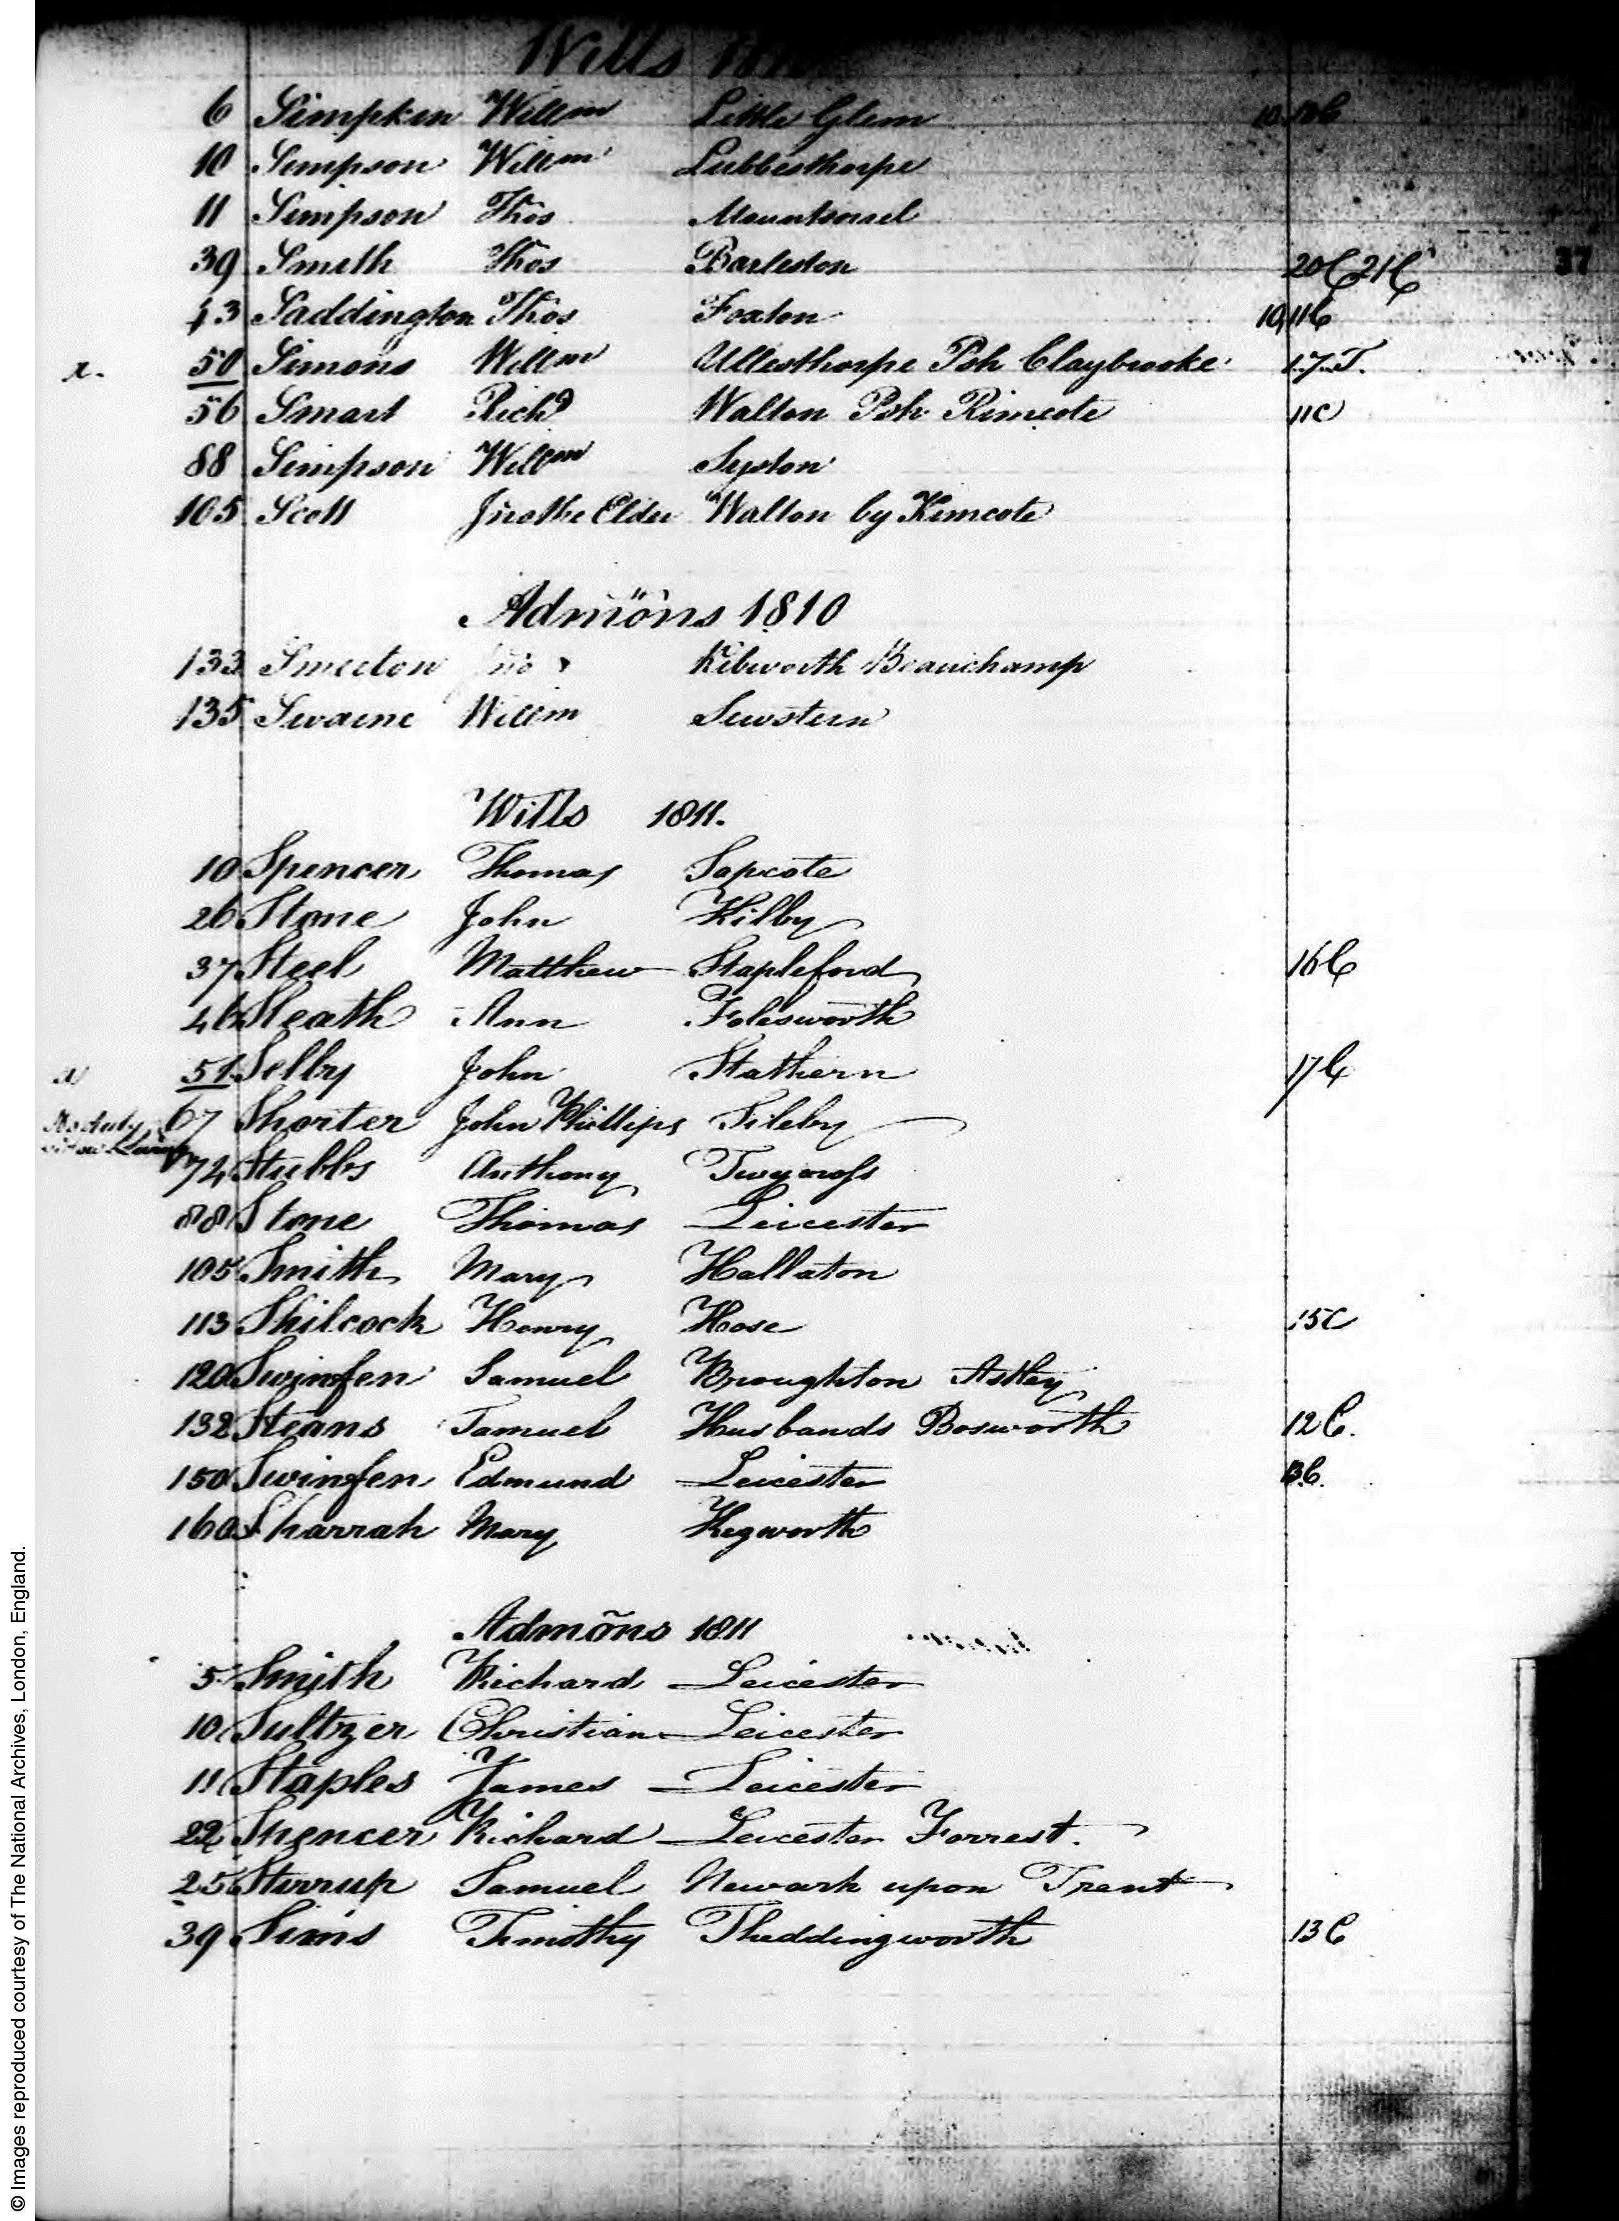 Wills 1810
6 Simpkin Willm Little Glem
10 Simpson Willm Lubbesthorpe
11 Simpson Thos Mountsorrel
39 Smith Thos Barleston 20C 21C 37
43 Saddington Thos Foxton 10,11C
x. 50 Simons Willm Ullesthorpe Psh Claybrooke 17.T.
56 Smart Richd Walton Psh Kimcote 11C
88 Simpson Willm Syston
105 Scott Jno the Elder Walton by Kimcote
Admõns 1810
133 Smeeton Jno Kibworth Beauchamp
135 Swaine Willm Sewstern
Wills 1811.
10 Spencer Thomas Sapcote
26 Stone John Kilby
37 Steel Matthew Stapleford 16C
46 Sleath Ann Folesworth
x 51 Selby John Stathern 17C
67 Shorter John Phillips Sileby
No duty
74 Stubbs Anthony Twycross
88 Stone Thomas Leicester
105 Smith Mary Hallaton
113 Shilcock Henry Hose 15C
120 Swinfen Samuel Broughton Astley
132 Steans Samuel Husbands Bosworth 12C.
150 Swinfen Edmund Leicester
160 Sharrah Mary Kegworth
Admõns 1811
5 Smith Richard Leicester
10 Sultzer Christian Leicester
11 Staples James Leicester
22 Spencer Richard Leicester Forrest.
25 Stirrup Samuel Newark upon Trent
39 Sims Timothy Theddingworth 13C
© Images reproduced courtesy of The National Archives, London, England.